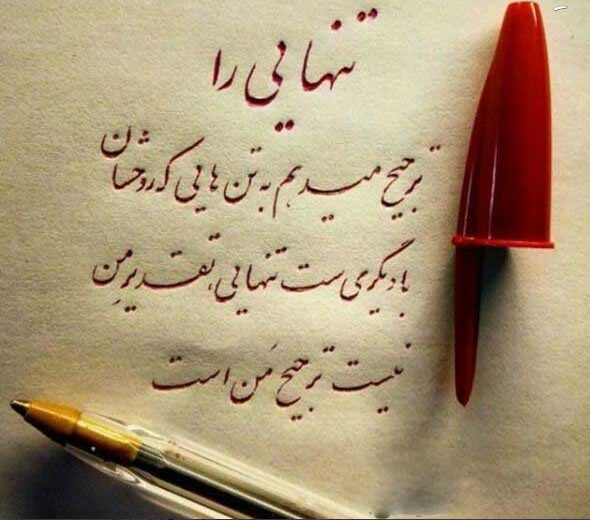 تنهایی را
ترجیح میدهم به تن هایی که روحشان
با دیگری ست تنهایی تقدیر من
نیست ترجیح من است